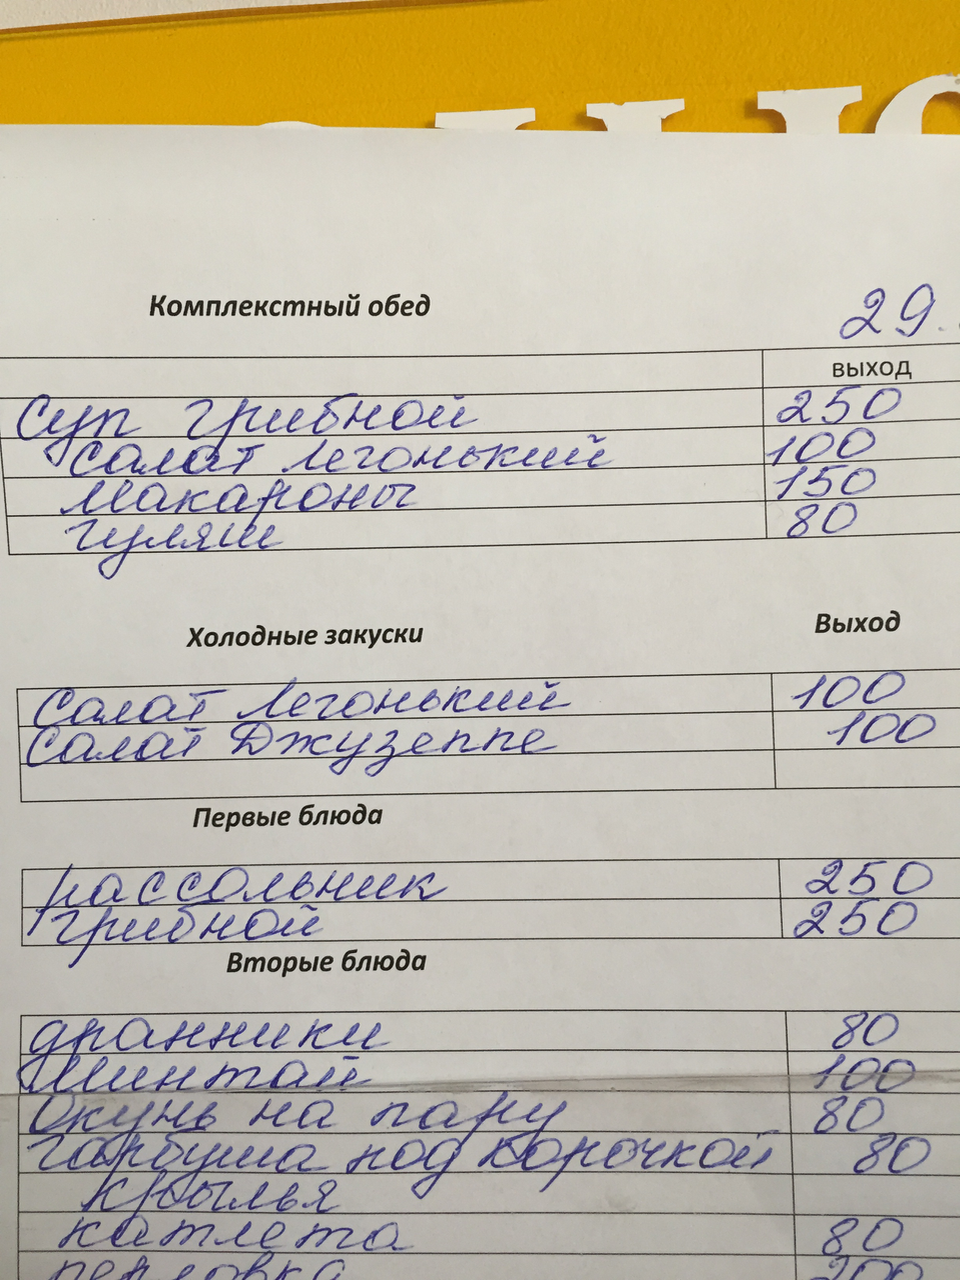 Комплекстный обед 29.
выход
Суп грибной 250
Салат Легонький 100
Макароны 150
гуляш 80
Холодные закуски Выход
Салат Легонький 100
Салат Джузеппе 100
Первые блюда
рассольник 250
грибной 250
Вторые блюда
дранники 80
Минтай 100
Окунь на пару 80
гарбуша под корочкой 80
крылья
катлета 80
перловка 200